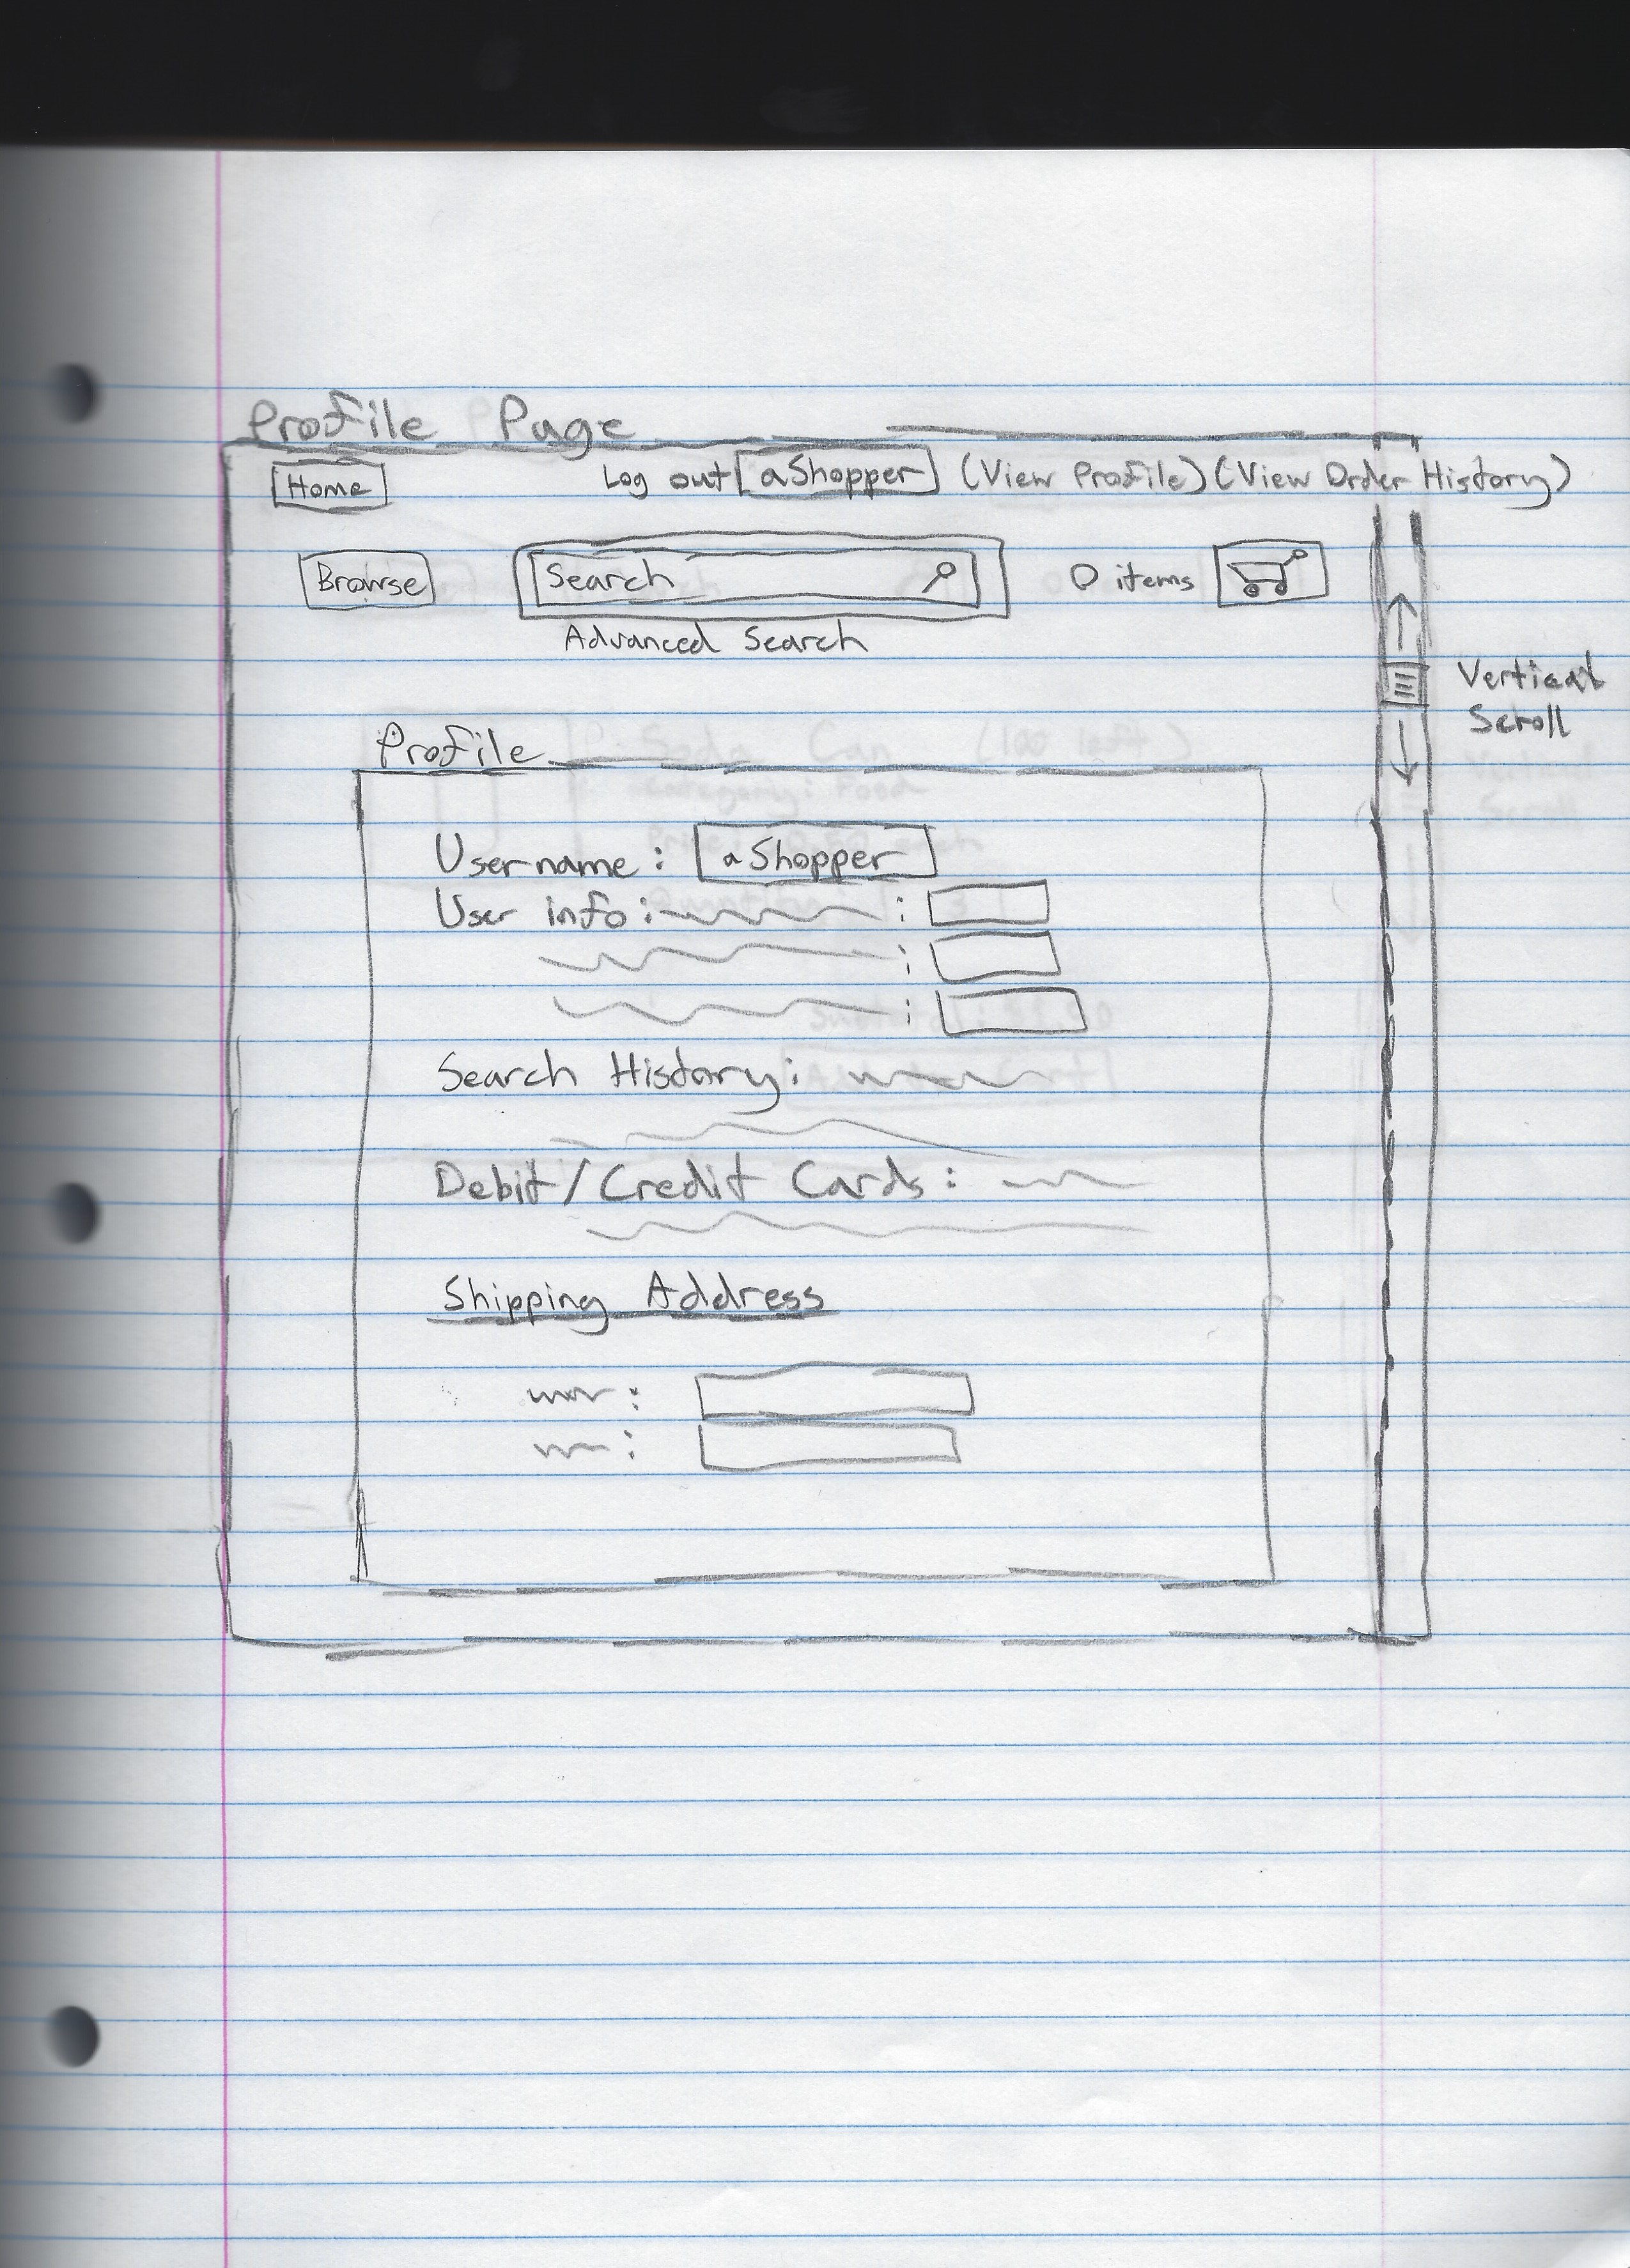 Profile Page
Home Log out aShopper (View Profile) (View Order History)
Browse Search 0 items
Advanced Search
Vertical
Scroll
Profile
Username: aShopper
User info: :
:
:
Search History:
Debit/Credit Cards:
Shipping Address
:
: